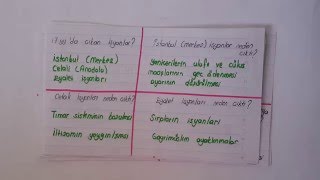 17.yy'da çıkan isyanlar?
İstanbul (Merkez)
Celali (Anadolu)
Eyalet isyanları
İstanbul (merkez) isyanları neden çıktı?
Yeniçerilerin ulufe ve cülus
maaşlarının geç ödenmesi
ayarının düşürülmesi
Celali isyanları neden çıktı?
Tımar sisteminin bozulması
İltizamın yaygınlaşması
Eyalet isyanları neden çıktı?
Sırpların isyanları
Gayrimüslim ayaklanmalar